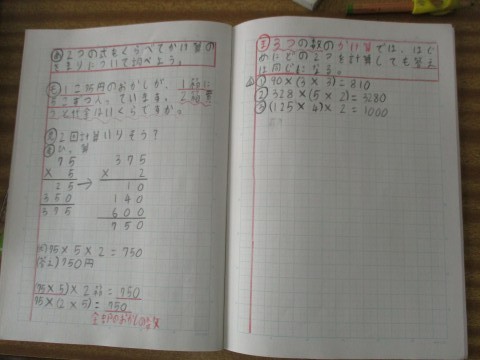 2つの式をくらべてかけ算の
きまりについて調べよう。
1こ75円のおかしが、1箱に
5こずつ入っています。2箱買
うと代金はいくらですか。
2回計算しそう?
ひっ算
75 375
× 5 × 2
25 → 10
350 140
375 600
750
75×5×2=750
(答え)750円
(75×5)×2箱=750
75×(2×5)=750
3つの数のかけ算では、はじ
めにどの2つを計算しても答え
は同じになる。
① 90×(3×3)=810
② 328×(5×2)=3280
③ (125×4)×2=1000